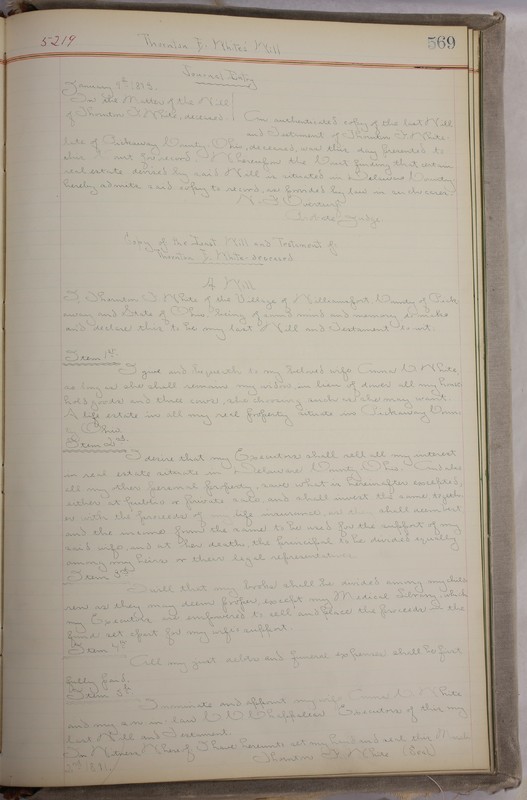 5219 Thornton F. White's Will 569
Journal Entry
January 1893.
In the Matter of the Will
of Thornton F. White, deceased
An authenticated copy of the last Will
and Testament of Thornton F. White
late of Pickaway County, Ohio, deceased, was this day presented to
this Court for record. Whereupon the Court finding that certain
real estate devised by said Will is situated in Delaware County
hereby admits said copy to record, as provided by law in such cases
Probate Judge
Copy of the Last Will and Testament of
Thornton F. White deceased
A Will
I, Thornton F. White of the Village of Williamsport County of Pick-
away and State of Ohio being of sound mind and memory do make
and declare this to be my last Will and Testament to wit.
Item 1st.
I give and bequeath to my beloved wife White,
so long as she shall remain my widow, in lieu of dower all my house
hold goods and three cows, she choosing such as she may want.
A life estate in all my real property situate in Pickaway Coun-
ty Ohio.
Item 2nd.
I desire that my Executors shall sell all my interest
in real estate situate in Delaware County Ohio. And also
all my other personal property, save what is hereinafter excepted,
either at public or private sale, and shall invest the same togeth-
er with the proceeds of my life insurance, as they shall deem best
and the income from the same to be used for the support of my
said wife, and at her death, the principal to be divided equally
among my heirs or their legal representatives.
Item 3rd
I will that my books shall be divided among my child-
ren as they may deem proper, except my Medical Library, which
my Executors are empowered to sell and place the proceeds in the
fund set apart for my wife's support.
Item 4th
All my just debts and funeral expenses shall be first
fully paid.
Item 5th
I nominate and appoint my wife White
and my son in law Executors of this my
last Will and Testament.
In Witness Whereof, I have hereunto set my hand and seal this March
Thornton F. White (Seal)